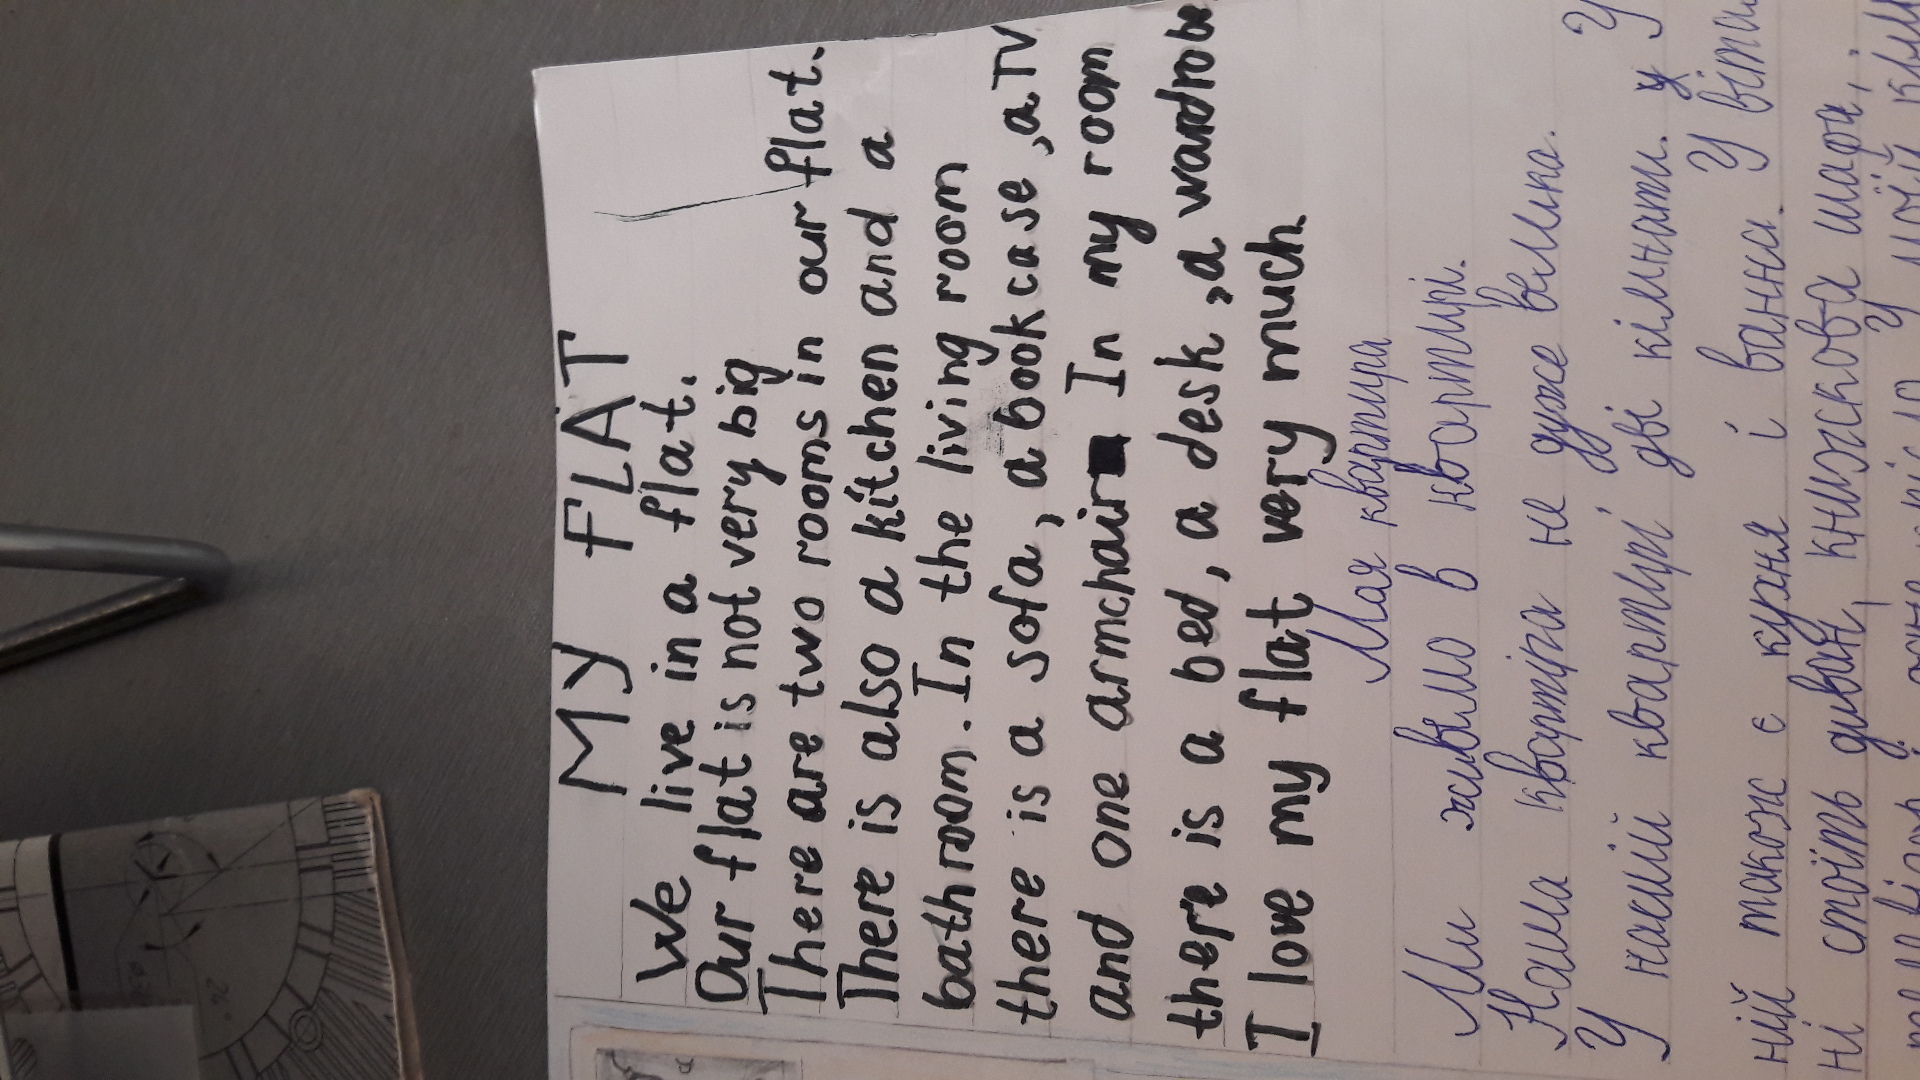 MY FLAT
We live in a flat.
Our flat is not very big
There are two rooms in our flat.
There is also a kitchen and a
bathroom. In the living room
there is a sofa, a bookcase, a TV
and one armchair In my room
there is a bed, a desk, a wardrobe
I love my flat very much.
Моя квартира
Ми живемо в квартирі.
Наша квартира не дуже велика. У
У нашій квартирі дві кімнати. У
ній також є кухня і ванна. У
ні стоїть диван, книжкова шафа,
У моїй